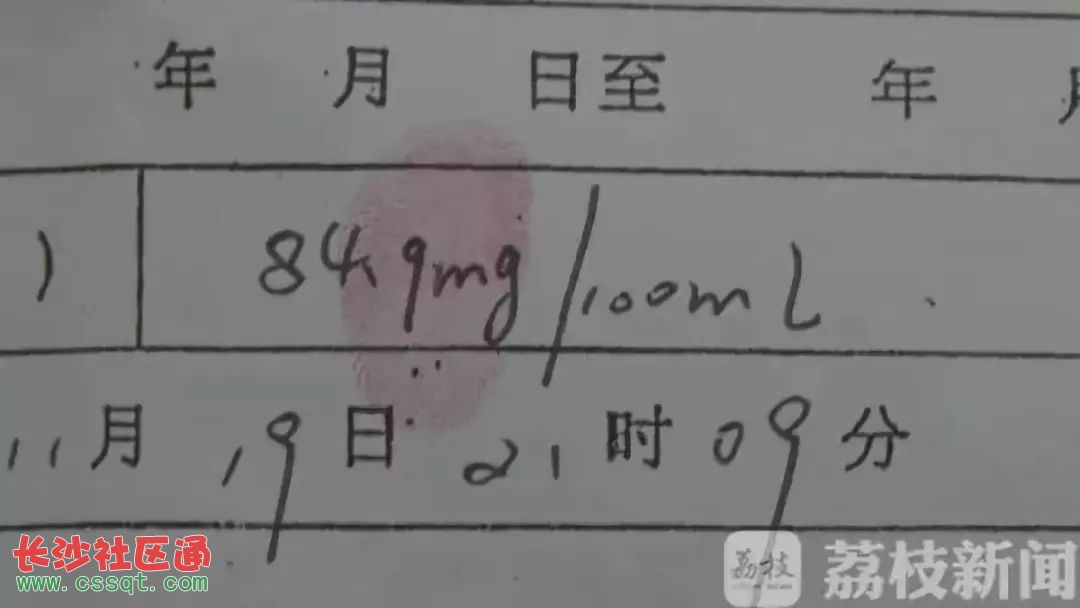 年 月 日至 年 月
) 84.9mg/100mL
11月19日21时09分
长沙社区通
www.cssqt.com
荔枝 荔枝新闻